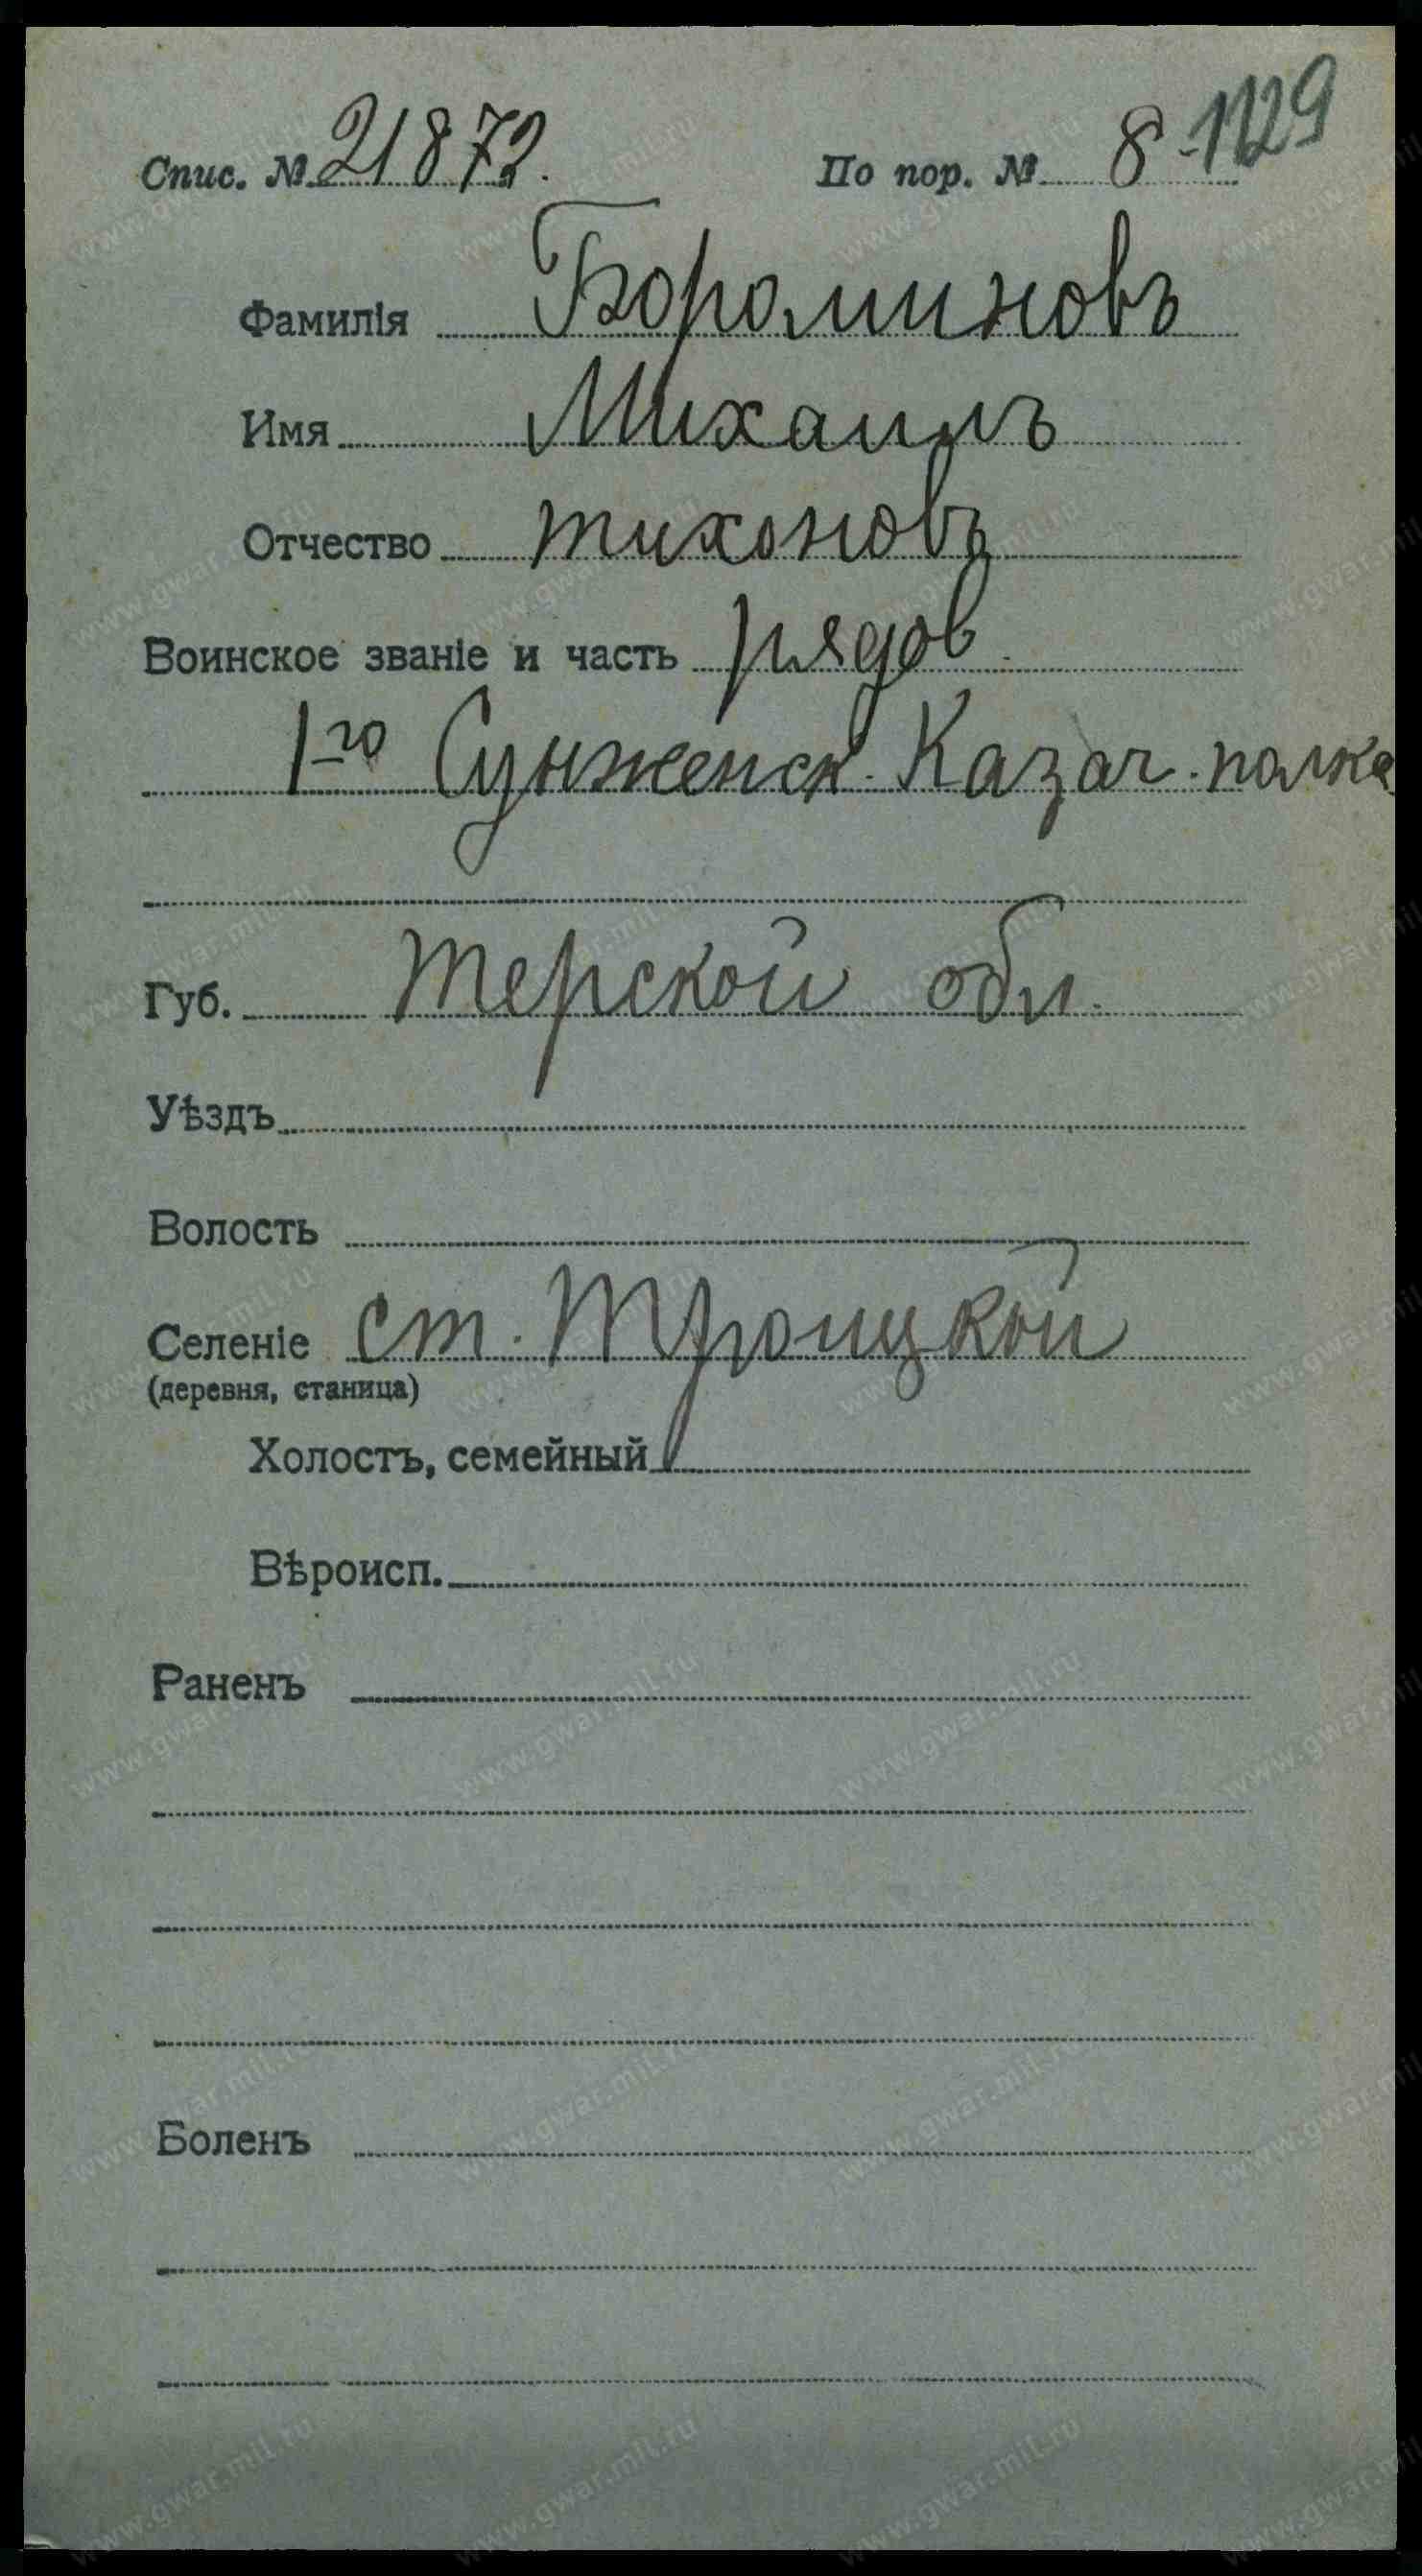 Спис. № 21872. По пор. № 8-1129
Фамилія Бороминовъ
Имя Михаилъ
Отчество тихоновъ
Воинское званіе и часть рядов.
1го Сунженск. Казач. полка
Губ. Терской обл.
Уѣздъ
Волость
Селеніе ст. Троицкой
(деревня, станица)
Холостъ, семейный
Вѣроисп.
Раненъ
Боленъ
www.gwar.mil.ru